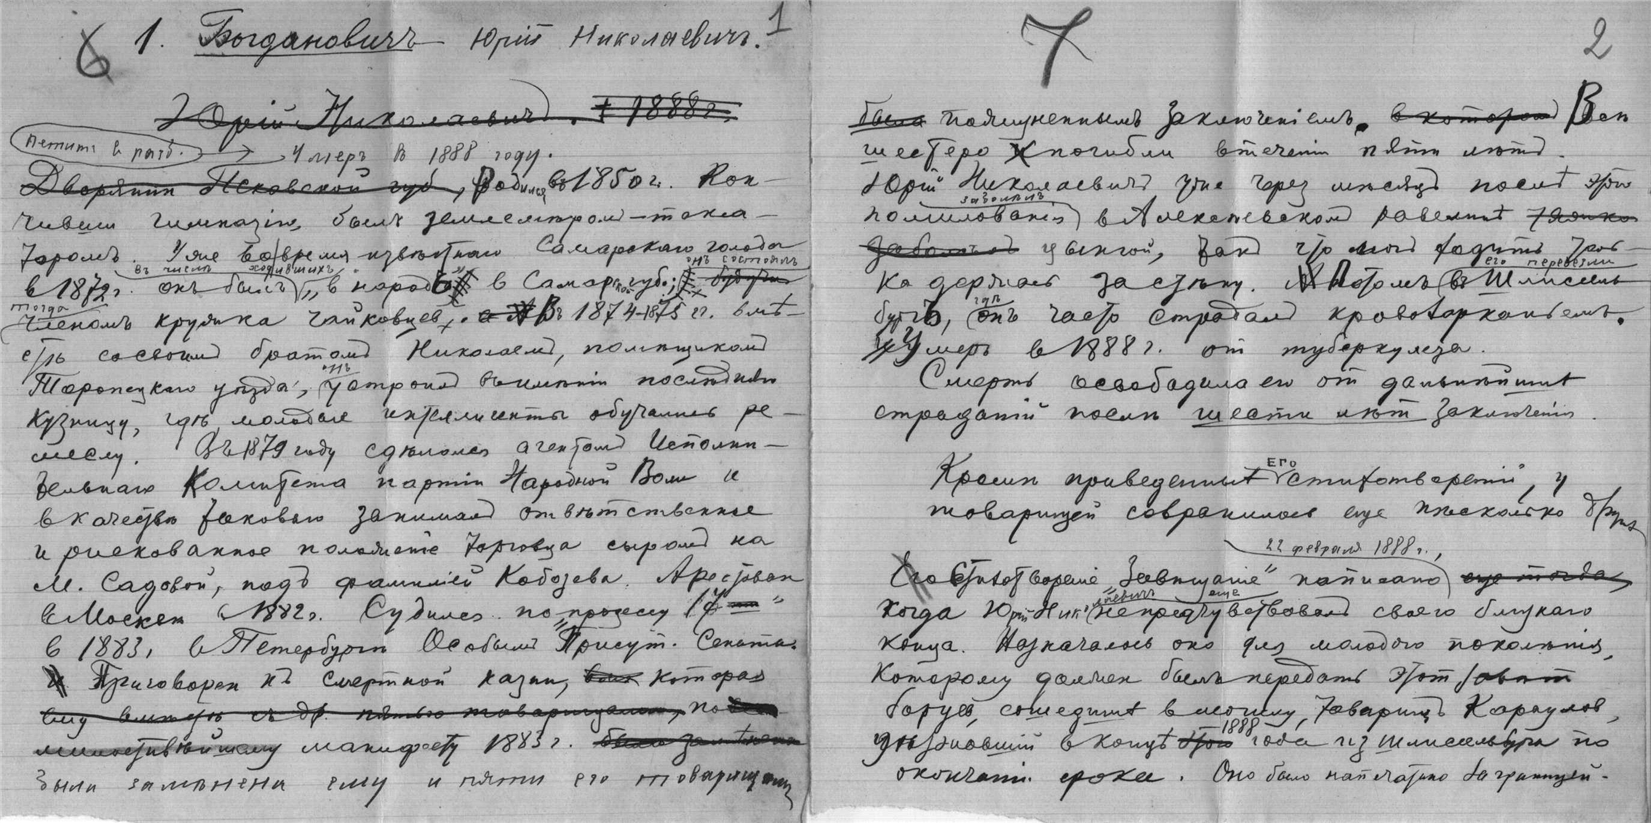 6
1. Богдановичъ Юрій Николаевичъ. 1
Юрій Николаевичъ. † 1888 г.
Петитъ в разб.
Умеръ в 1888 году.
Дворянин Псковской губ, Родился въ 1850 г. Кон-
чивши гимназію, былъ землемѣром-такса-
торомъ. Уже во время извѣстнаго Самарскаго голода
въ числѣ ходившихъ онъ состоялъ
в 1872 г. онъ былъ „в народъ" в Самарской губ.; будучи
тогда
членомъ кружка чайковцев. а В 1874-1875 гг. вмѣ-
стѣ со своимъ братомъ Николаемъ, помѣщикомъ
онъ
Торопецкаго уѣзда, устроилъ въ имѣніи послѣдняго
кузницу, гдѣ молодые интеллигенты обучались ре-
меслу. Въ 1879 году сдѣлался агентомъ Исполни-
тельнаго Комитета партіи Народной Воли и
в качествѣ таковаго занималъ отвѣтственное
и рискованное положеніе торговца сыромъ на
М. Садовой, подъ фамиліей Кобозева. Арестован
в Москвѣ в 1882 г. Судился по процессу „17"
в 1883, в Петербургѣ Особымъ Присут. Сената.
и Приговорен къ смертной казни, которая
ему вмѣстѣ съ др. пятью товарищами, по
милостивѣйшему манифесту 1883 г. была замѣнена
была замѣнена ему и пяти его товарищамъ
7
2
была пожизненнымъ заключеніемъ. в котором Всѣ
шестеро погибли в теченіи пяти лѣтъ.
Юрій Николаевичъ уже через мѣсяцъ послѣ этого
заболѣлъ
помилованія в Алексѣевскомъ равелинѣ тяжко
заболѣлъ цынгой, такъ что могъ ходить толь-
его перевели
ко держась за стѣну. Потомъ в Шлиссель-
гдѣ
бургъ, онъ часто страдалъ кровохарканьемъ.
Умеръ в 1888 г. от туберкулеза.
Смерть освободила его от дальнѣйшихъ
страданій послѣ шести лѣт заключенія.
его
Кромѣ приведенныхъ стихотвореній, у
товарищей сохранилось еще нѣсколько других
22 февраля 1888 г.,
Стихотвореніе „Завѣщаніе" написано еще тогда,
еще
когда Юрій Ник. не предчувствовалъ своего близкаго
конца. Назначалось оно для молодого поколѣнія,
которому должен былъ передать этот завѣт
борцовъ, сошедших в могилу, товарищъ Караулов,
1888
уѣзжавшій в концѣ этого года из Шлиссельбурга по
окончаніи срока. Оно было напечатано за границей.